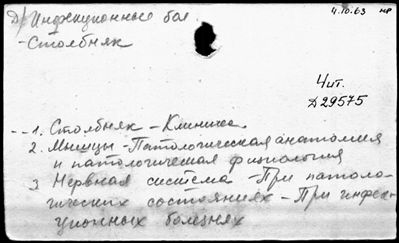 Д/Инфекционные бол.
4.10.63 нр
-Столбняк
Чит.
Д29575
1. Столбняк - Клиника.
2. Мышцы - Патологическая анатомия
и патологическая физиология
3 Нервная система - При патоло-
гических состояниях - При инфек-
ционных болезнях